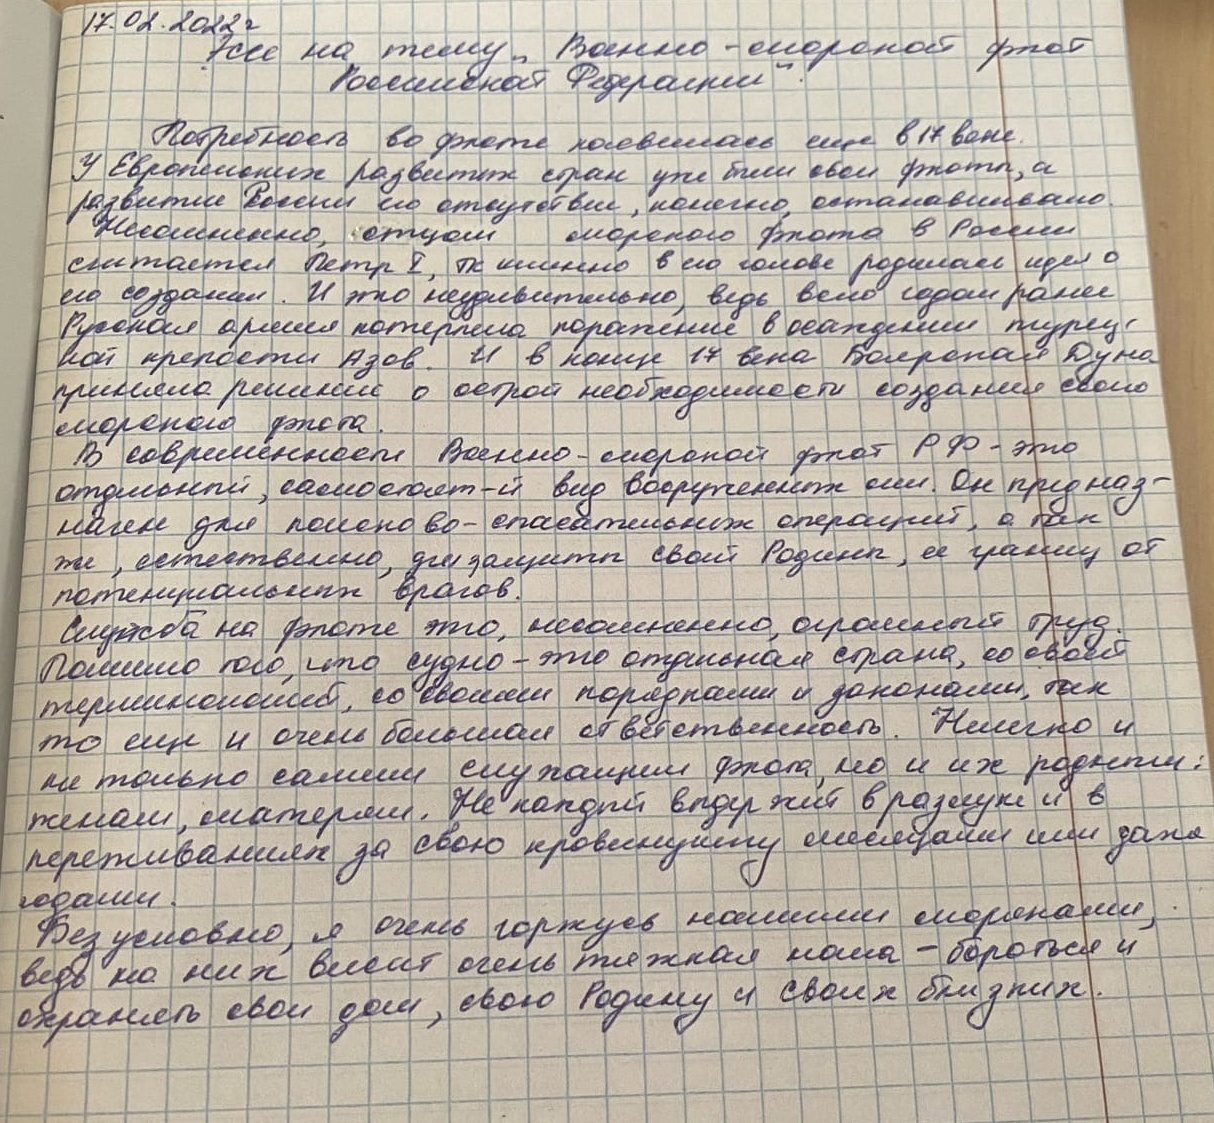 17.02.2022г
Эссе на тему „Военно-морской флот
Российской Федерации".
Потребность во флоте появилась еще в 17 веке.
У Европейских развитых стран уже были свои флоты, а
развитие России его отсутствие, конечно, останавливало.
Несомненно, отцом морского флота в России
считается Петр I, тк именно в его голове родилась идея о
его создании. И это неудивительно, ведь всего годом ранее
Русская армия потерпела поражение в осаждении турец-
кой крепости Азов. И в конце 17 века Боярская Дума
приняла решение о острой необходимости создания своего
морского флота.
В современности Военно-морской флот РФ - это
отдельный, самостоят-й вид вооруженных сил. Он предназ-
начен для поисково-спасательных операций, а так
же, естественно, для защиты своей Родины, ее границ от
потенциальных врагов.
Служба на флоте это, несомненно, огромный труд.
Помимо того, что судно - это отдельная страна, со своей
терминологией, со своими порядками и законами, так
то еще и очень большая ответственность. Нелегко и
не только самим служащим флота, но и их родным:
женам, матерям. Не каждый выдержит в разлуке и в
переживаниях за свою кровинушку месяцами или даже
годами.
Безусловно, я очень горжусь нашими моряками,
ведь на них висит очень тяжкая ноша - бороться и
охранять свой дом, свою Родину и своих близких.